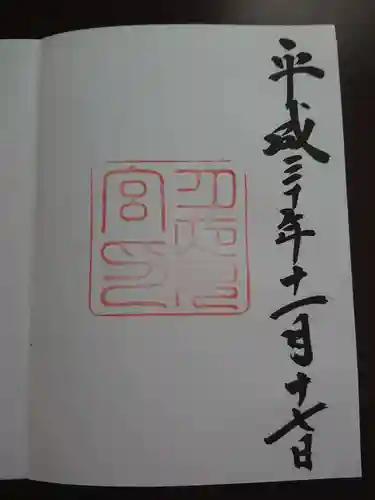 平成三十年十一月十七日
宮印